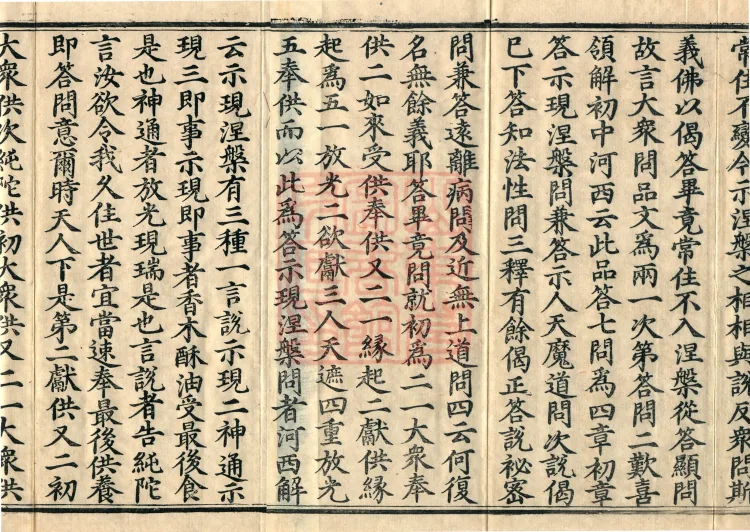 常住不變今示涅槃之相相與說反衆問斯
義佛以偈答畢竟常住不入涅槃從答顯問
故言大衆問品文爲兩一次第答問二歎喜
領解初中河西云此品答七問爲四章初章
答示現涅槃問兼答示人天魔道問次說偈
巳下答知法性問三釋有餘偈正答說祕密
問兼答遠離病問及近無上道問四云何復
名無餘義耶答畢竟問就初爲二一大衆奉
供二如來受供奉供又二一緣起二獻供緣
起爲五一放光二欲獻三人天遮四重放光
五奉供而以此爲答示現涅槃問者河西解
云示現涅槃有三種一言說示現二神通示
現三即事示現即事者香木酥油受最後食
是也神通者放光現瑞是也言說者告純陀
言汝欲令我久住世者宜當速奉最後供養
即答問意爾時天人下是第二獻供又二初
大衆供次純陀供初大衆供又二一大衆供